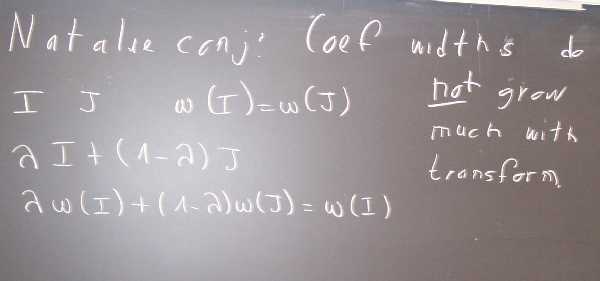 Natalie conj: Coef widths do
not grow
much with
transform
I J w(I)=w(J)
λI+(1-λ)J
λw(I)+(1-λ)w(J)=w(I)